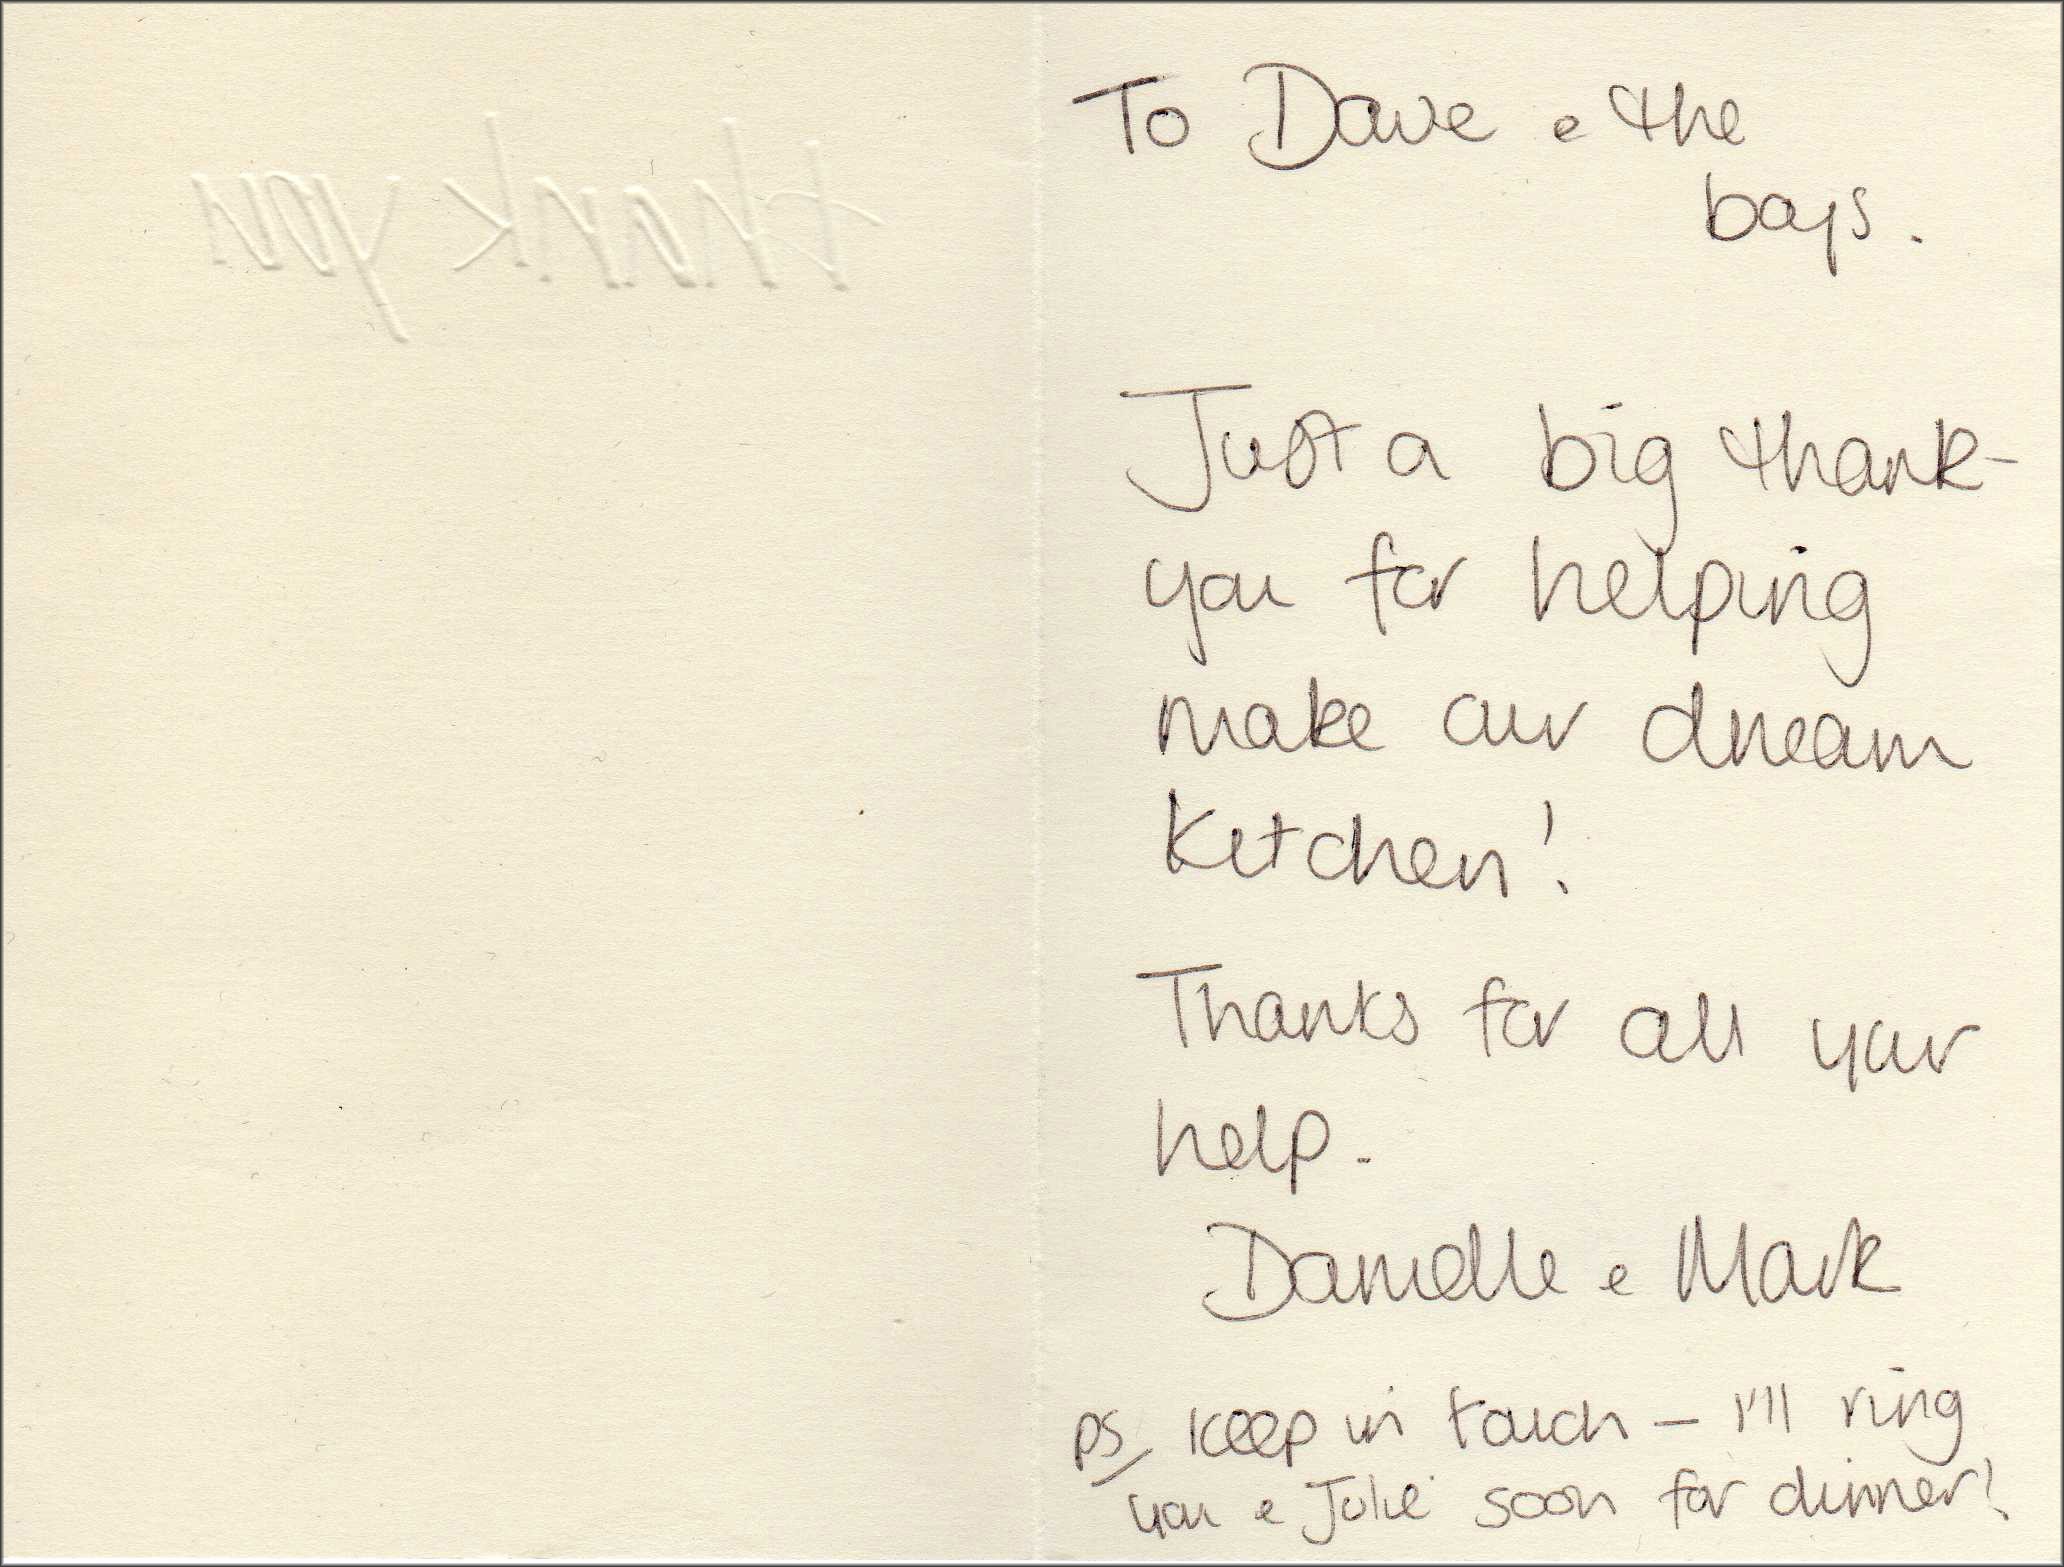 thank you
To Dave e the
boys.
Just a big thank-
you for helping
make our dream
kitchen!
Thanks for all your
help.
Danielle e Mark
PS/ keep in touch – I'll ring
you e Julie soon for dinner!